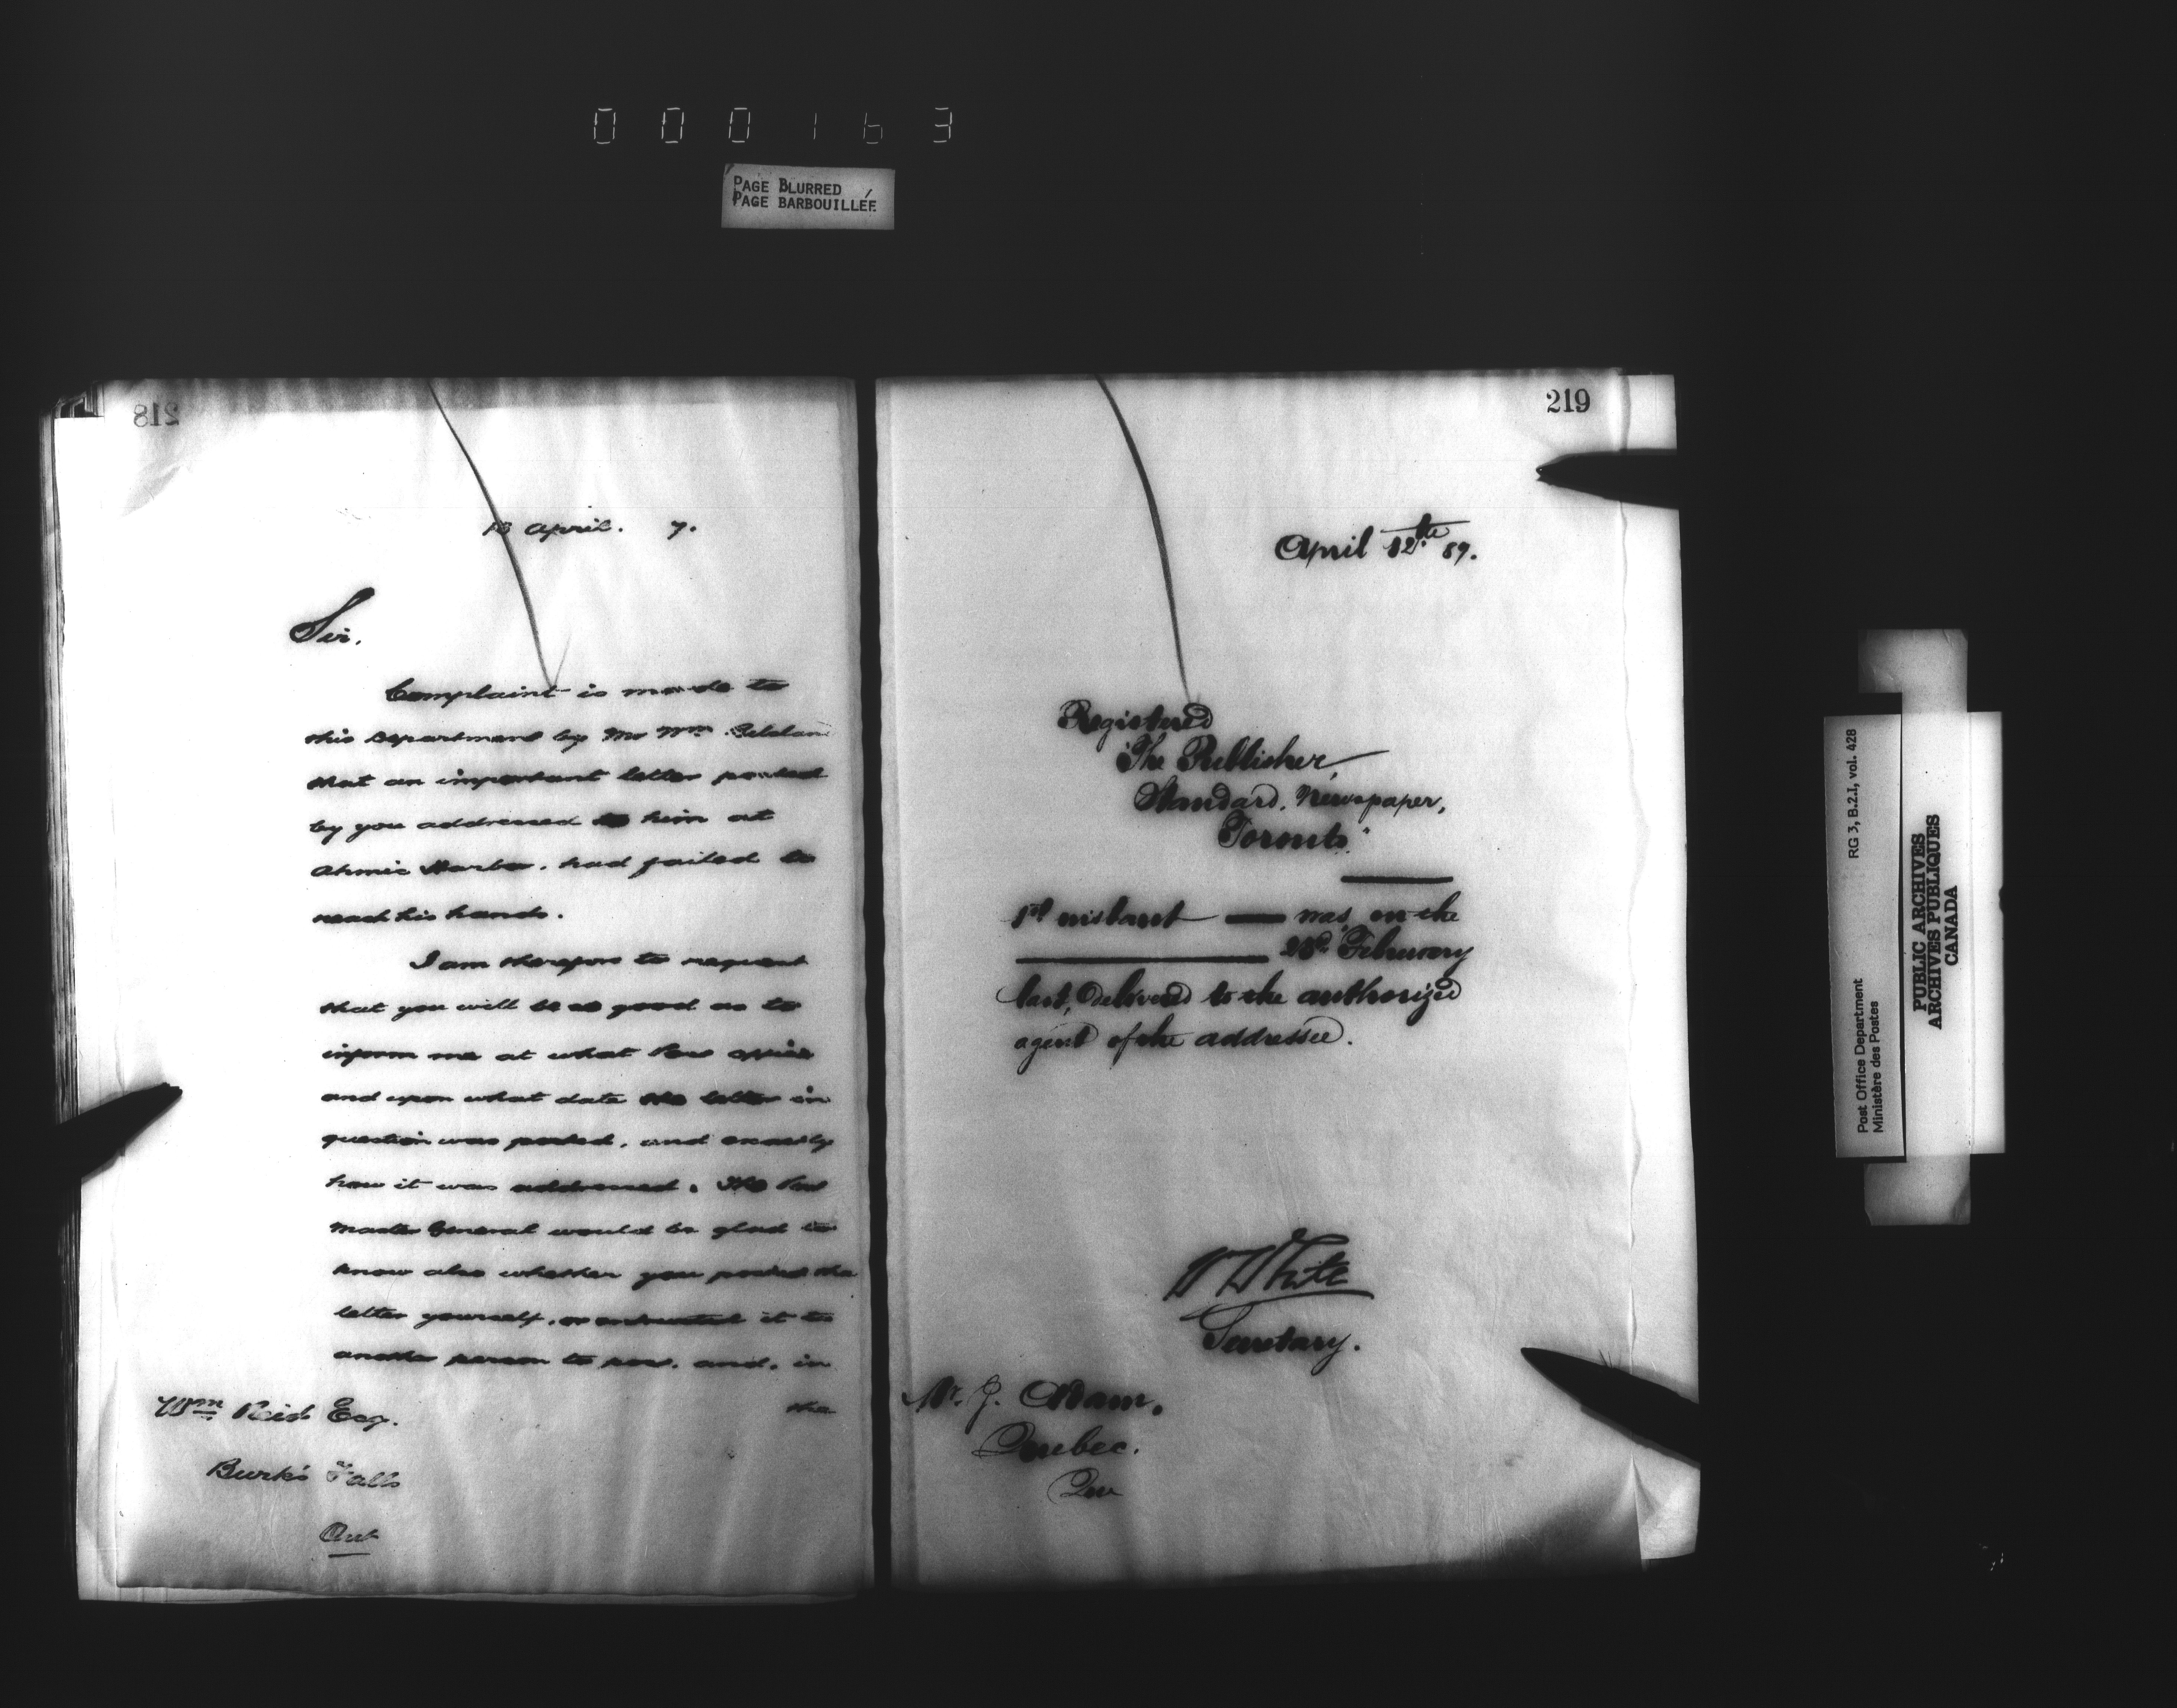 000163
PAGE BLURRED
PAGE BARBOUILLÉE
218
13 April. 7.
Sir,
Complaint is made to
this Department by Mr Wm.
that an important letter posted
by you addressed to him at
Ahmic Harbor, had failed to
reach his hands.
I am therefore to request
that you will be so good as to
inform me at what Post Office
and upon what date the letter in
question was posted, and exactly
how it was addressed. The Post
Master General would be glad to
know also whether you posted the
letter yourself, or entrusted it to
another person to post, and, in
the
Wm Reid Esq.
Burk's Falls
Ont
219
April 12th 87.
Registered
"The Publisher,
Standard, Newspaper,
Toronto."
1st instant was, on the
23rd February
last, delivered to the authorized
agent of the addressee.
W White
Secretary.
Mr. J. Adam,
Quebec.
Que
Post Office Department RG 3, B.2.I, vol. 428
Ministère des Postes
PUBLIC ARCHIVES
ARCHIVES PUBLIQUES
CANADA